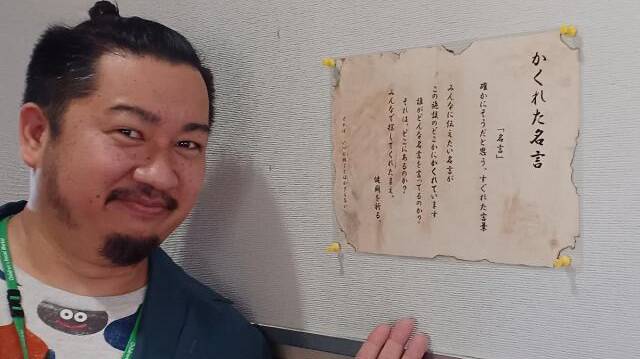 かくれた名言
「名言」
確かにそうだと思う、すぐれた言葉
みんなに伝えたい名言が
この施設のどこかにかくれています
誰がどんな名言を言ってるのか?
それは、どこにあるのか?
みんなで探してくれたまえ。
健闘を祈る。